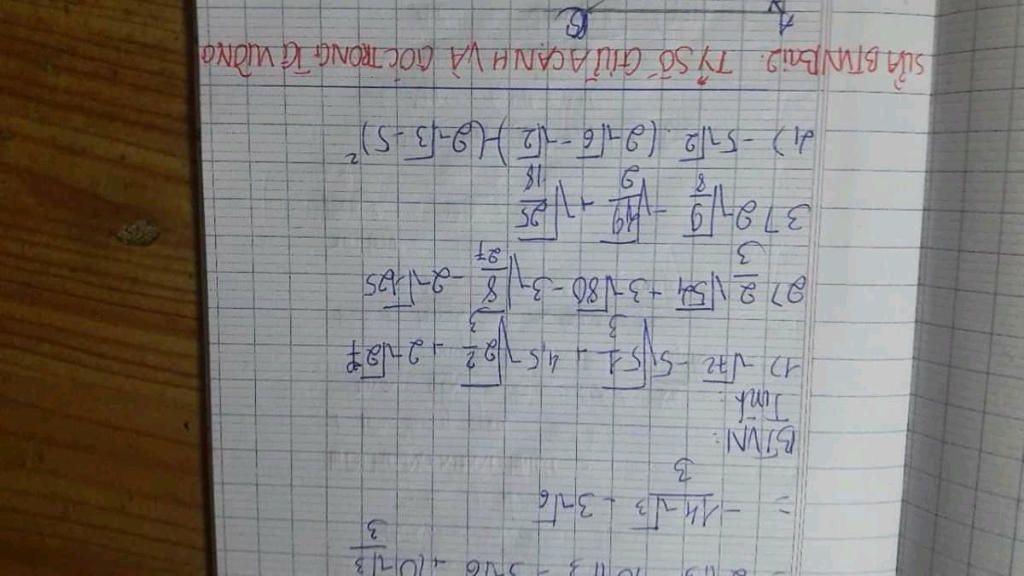 = -14√3/3 + 3√6
BTVN:
Tính:
1) √72 - 5√(5 1/3) + 4,5√(2 2/3) + 2√27
2) 2/3 √54 + 3√80 - 3√(8/27) - 2√125
3) 2√(9/8) - √(49/2) + √(25/18)
4) -5√2 . (2√6 - √2) - (2√3 - 5)²
SỬA BTVN Bài 2. TỶ SỐ GIỮA CẠNH VÀ GÓC TRONG TG VUÔNG
A B